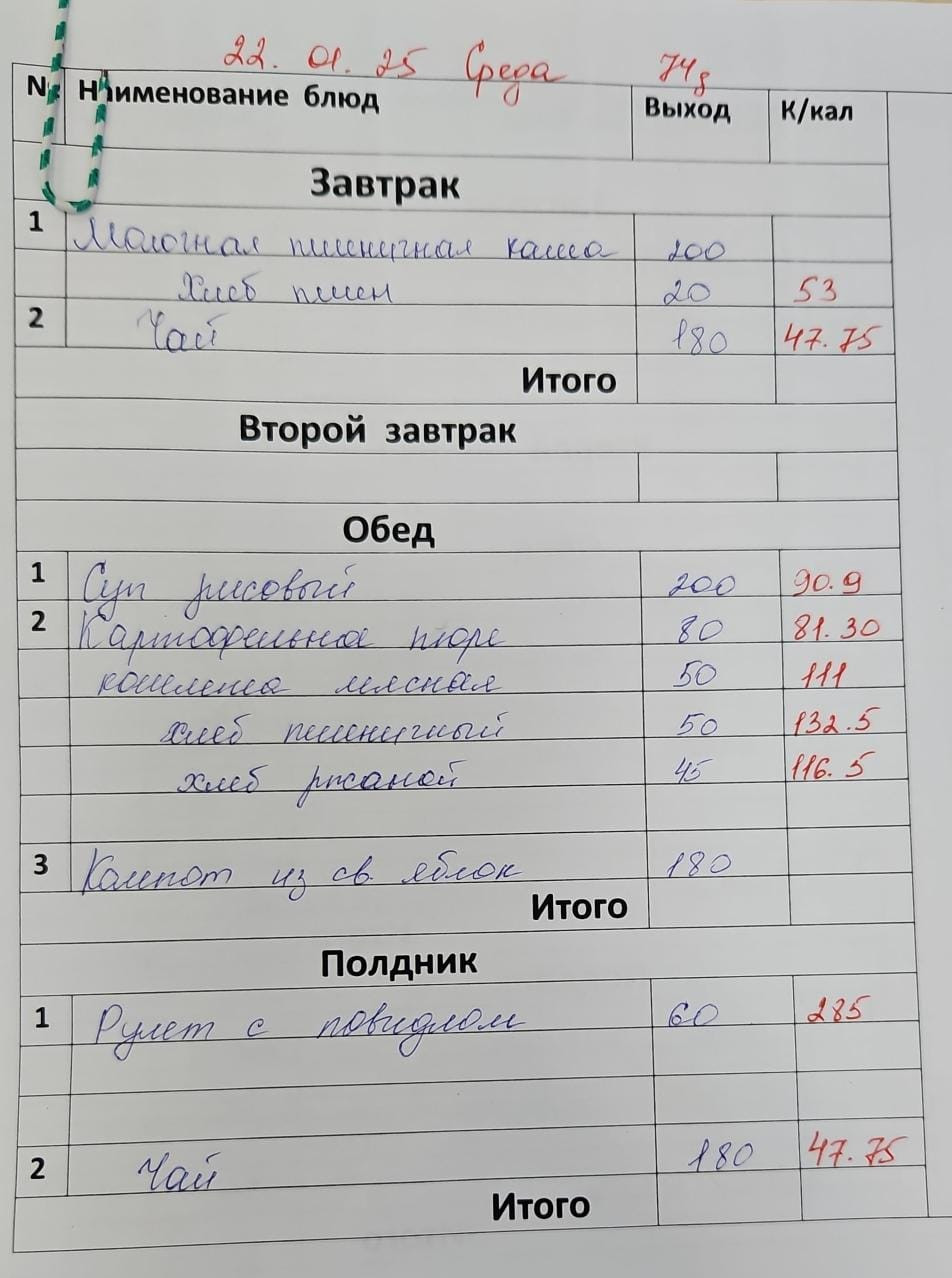 22. 01. 25 Среда 74д
№ Наименование блюд Выход К/кал
Завтрак
1 Молочная пшеничная каша 200
Хлеб пшен 20 53
2 Чай 180 47.75
Итого
Второй завтрак
Обед
1 Суп рисовый 200 90.9
2 Картофельное пюре 80 81.30
котлета мясная 50 111
хлеб пшеничный 50 132.5
хлеб ржаной 45 116.5
3 Компот из св. яблок 180
Итого
Полдник
1 Рулет с повидлом 60 285
2 Чай 180 47.75
Итого